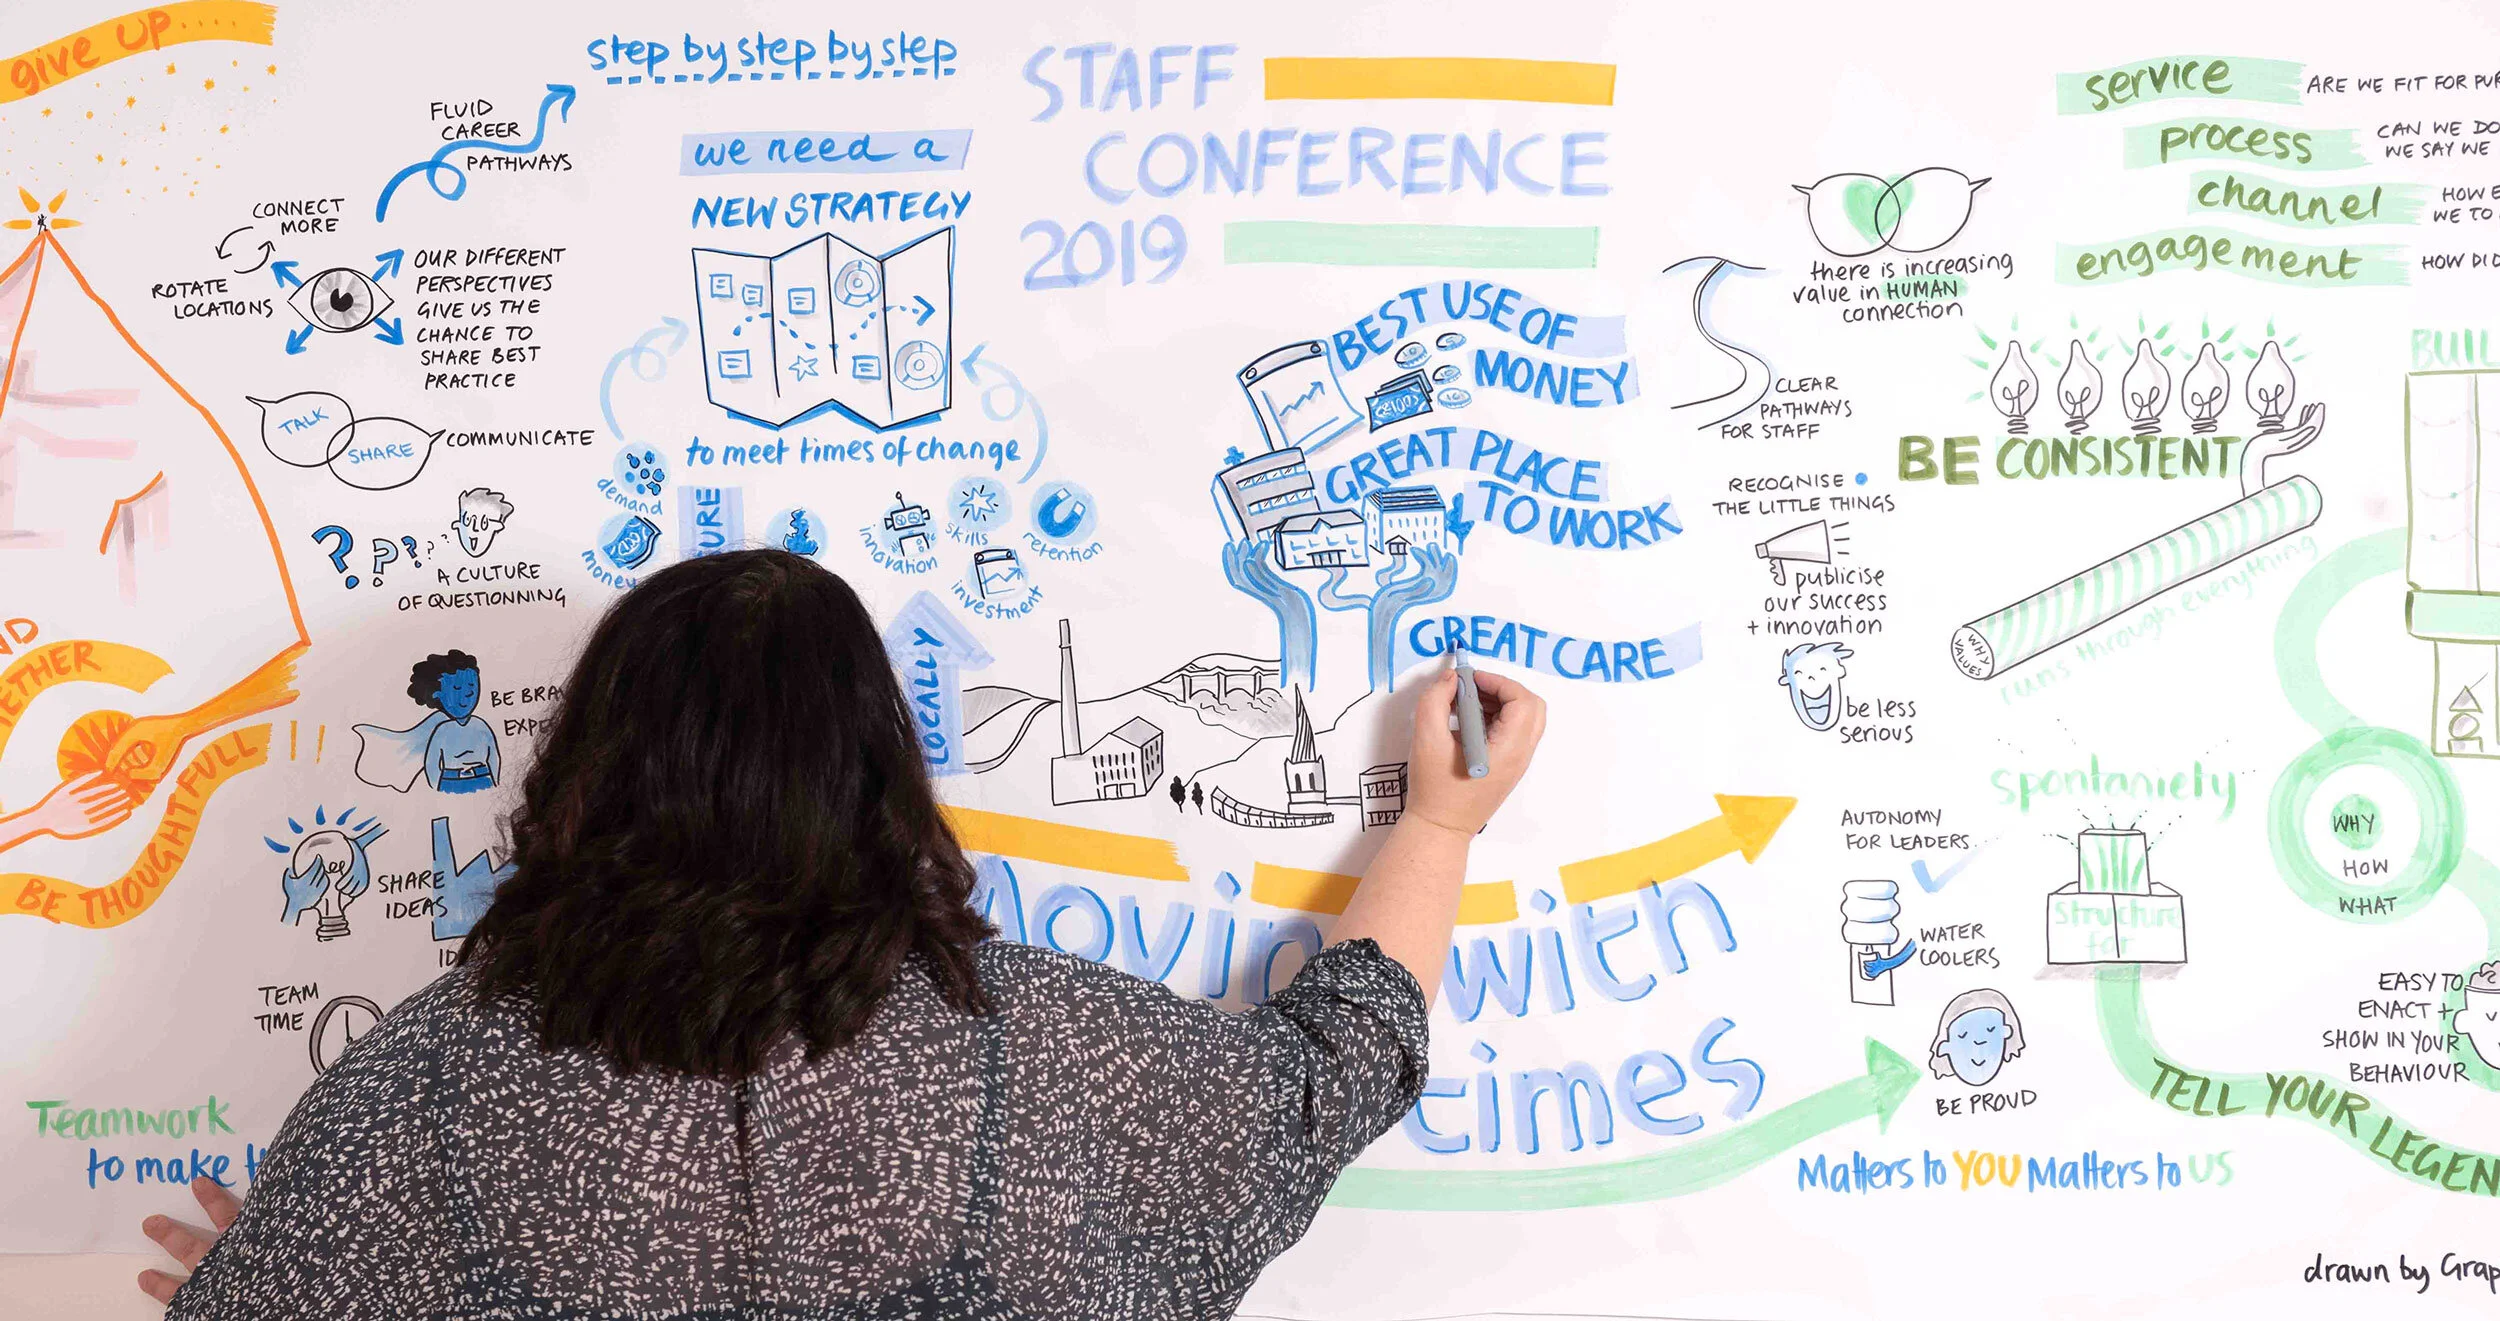 give up....
FLUID
CAREER
PATHWAYS
CONNECT
MORE
ROTATE
LOCATIONS
OUR DIFFERENT
PERSPECTIVES
GIVE US THE
CHANCE TO
SHARE BEST
PRACTICE
TALK
SHARE
COMMUNICATE
? ? ? ? ?
A CULTURE
OF QUESTIONNING
BE BRA
EXPE
SHARE
IDEAS
ID
TEAM
TIME
BE THOUGHTFULL
Teamwork
to make
step by step by step
we need a
NEW STRATEGY
to meet times of change
demand
money
URE
innovation
skills
investment
retention
LOCALLY
STAFF
CONFERENCE
2019
BEST USE OF
MONEY
GREAT PLACE
TO WORK
GREAT CARE
Moving with
times
there is increasing
value in HUMAN
connection
CLEAR
PATHWAYS
FOR STAFF
RECOGNISE
THE LITTLE THINGS
publicise
our success
+ innovation
be less
serious
AUTONOMY
FOR LEADERS
WATER
COOLERS
BE PROUD
Matters to YOU Matters to US
service
ARE WE FIT FOR PUR
process
CAN WE DO
WE SAY WE
channel
HOW E
WE TO
engagement
HOW DID
BE CONSISTENT
WHY
VALUES
runs through everything
BUIL
spontaniety
structure
for
WHY
HOW
WHAT
EASY TO
ENACT +
SHOW IN YOUR
BEHAVIOUR
TELL YOUR LEGEN
drawn by Grap